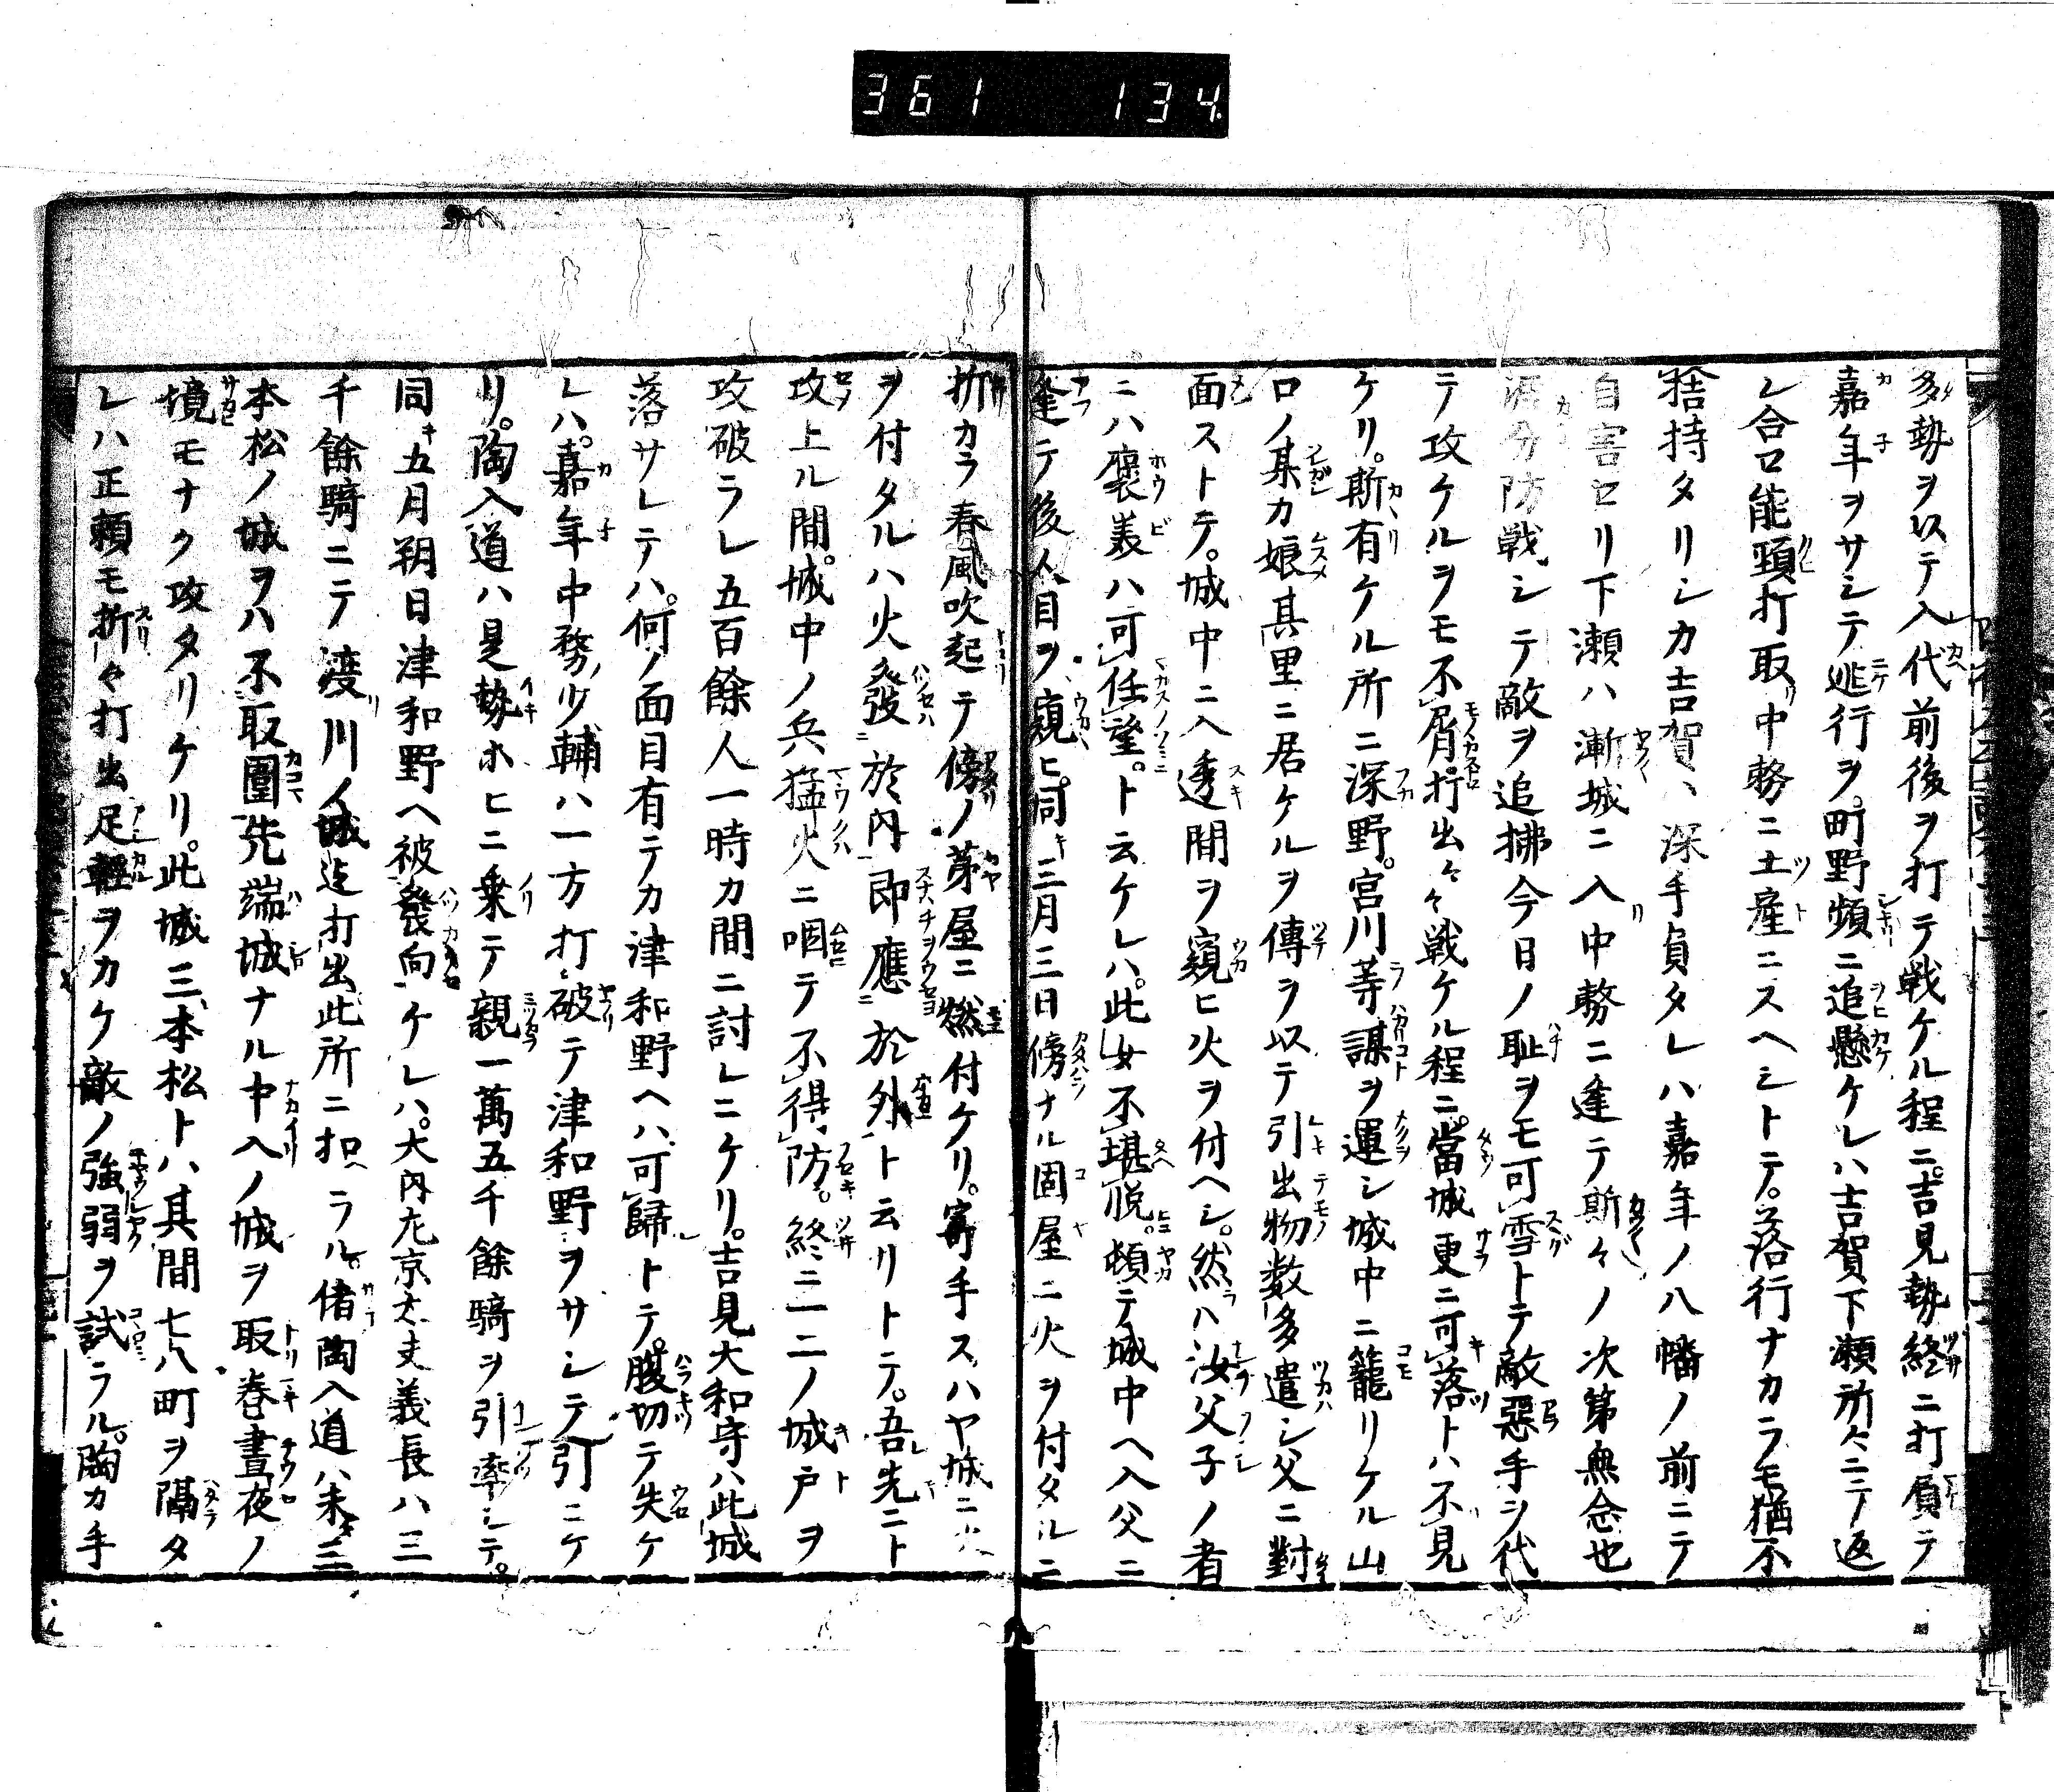 361 134
多勢ヲ以テ入代前後ヲ打テ戦ケル程ニ。吉見勢終ニ打負テ
嘉年ヲサシテ迯行ヲ。町野頻ニ追懸ケレハ吉賀下瀬所々ニテ返
レ合ロ能頸打取中務ニ土産ニスヘシトテ。落行ナカラモ猶不
捨持タリシカ吉賀ハ深手負タレハ嘉年ノ八幡ノ前ニテ
自害セリ下瀬ハ漸城ニ入中務ニ逢テ斯々ノ次第無念也
涯分防戦シテ敵ヲ追拂今日ノ恥ヲモ可雪トテ敵惡手ヲ代
テ攻ケルヲモ不屑打出々々戦ケル程ニ。當城更ニ可落トハ不見
ケリ。斯有ケル所ニ深野。宮川等謀ヲ運シ城中ニ籠リケル山
ロノ某カ娘其里ニ居ケルヲ傳ヲ以テ引出物数多遣シ父ニ對
面ストテ。城中ニ入透間ヲ窺ヒ火ヲ付ヘシ。然ハ汝父子ノ者
ニハ褒美ハ可任望。ト云ケレハ。此女不堪悦。頓テ城中ヘ入父ニ
逢テ後人目ヲ窺ヒ。同キ三月三日傍ナル固屋ニ火ヲ付タルニ
折カラ春風吹起テ傍ノ茅屋ニ燃付ケリ。寄手スハヤ城ニ火
ヲ付タルハ火發於内即應於外ト云リトテ。吾先ニト
攻上ル間。城中ノ兵猛火ニ咽テ不得防。終ニ一二ノ城戸ヲ
攻破ラレ五百餘人一時カ間ニ討レニケリ。吉見大和守ハ此城
落サレテハ。何ノ面目有テカ津和野ヘハ可歸トテ。腹切テ失ケ
レハ。嘉年中務少輔ハ一方打破テ津和野ヲサシテ引ニケ
リ。陶入道ハ是勢ホヒニ乗テ親一萬五千餘騎ヲ引率シテ。
同キ五月朔日津和野ヘ被發向ケレハ。大内左京大夫義長ハ三
千餘騎ニテ渡川ノ城迄打出此所ニ扣ヘラル。偖陶入道ハ未三
本松ノ城ヲハ不取圍先端城ナル中入ノ城ヲ取巻晝夜ノ
境モナク攻タリケリ。此城三本松トハ其間七八町ヲ隔タ
レハ正頼モ折々打出足輕ヲカケ敵ノ強弱ヲ試ラル。陶カ手